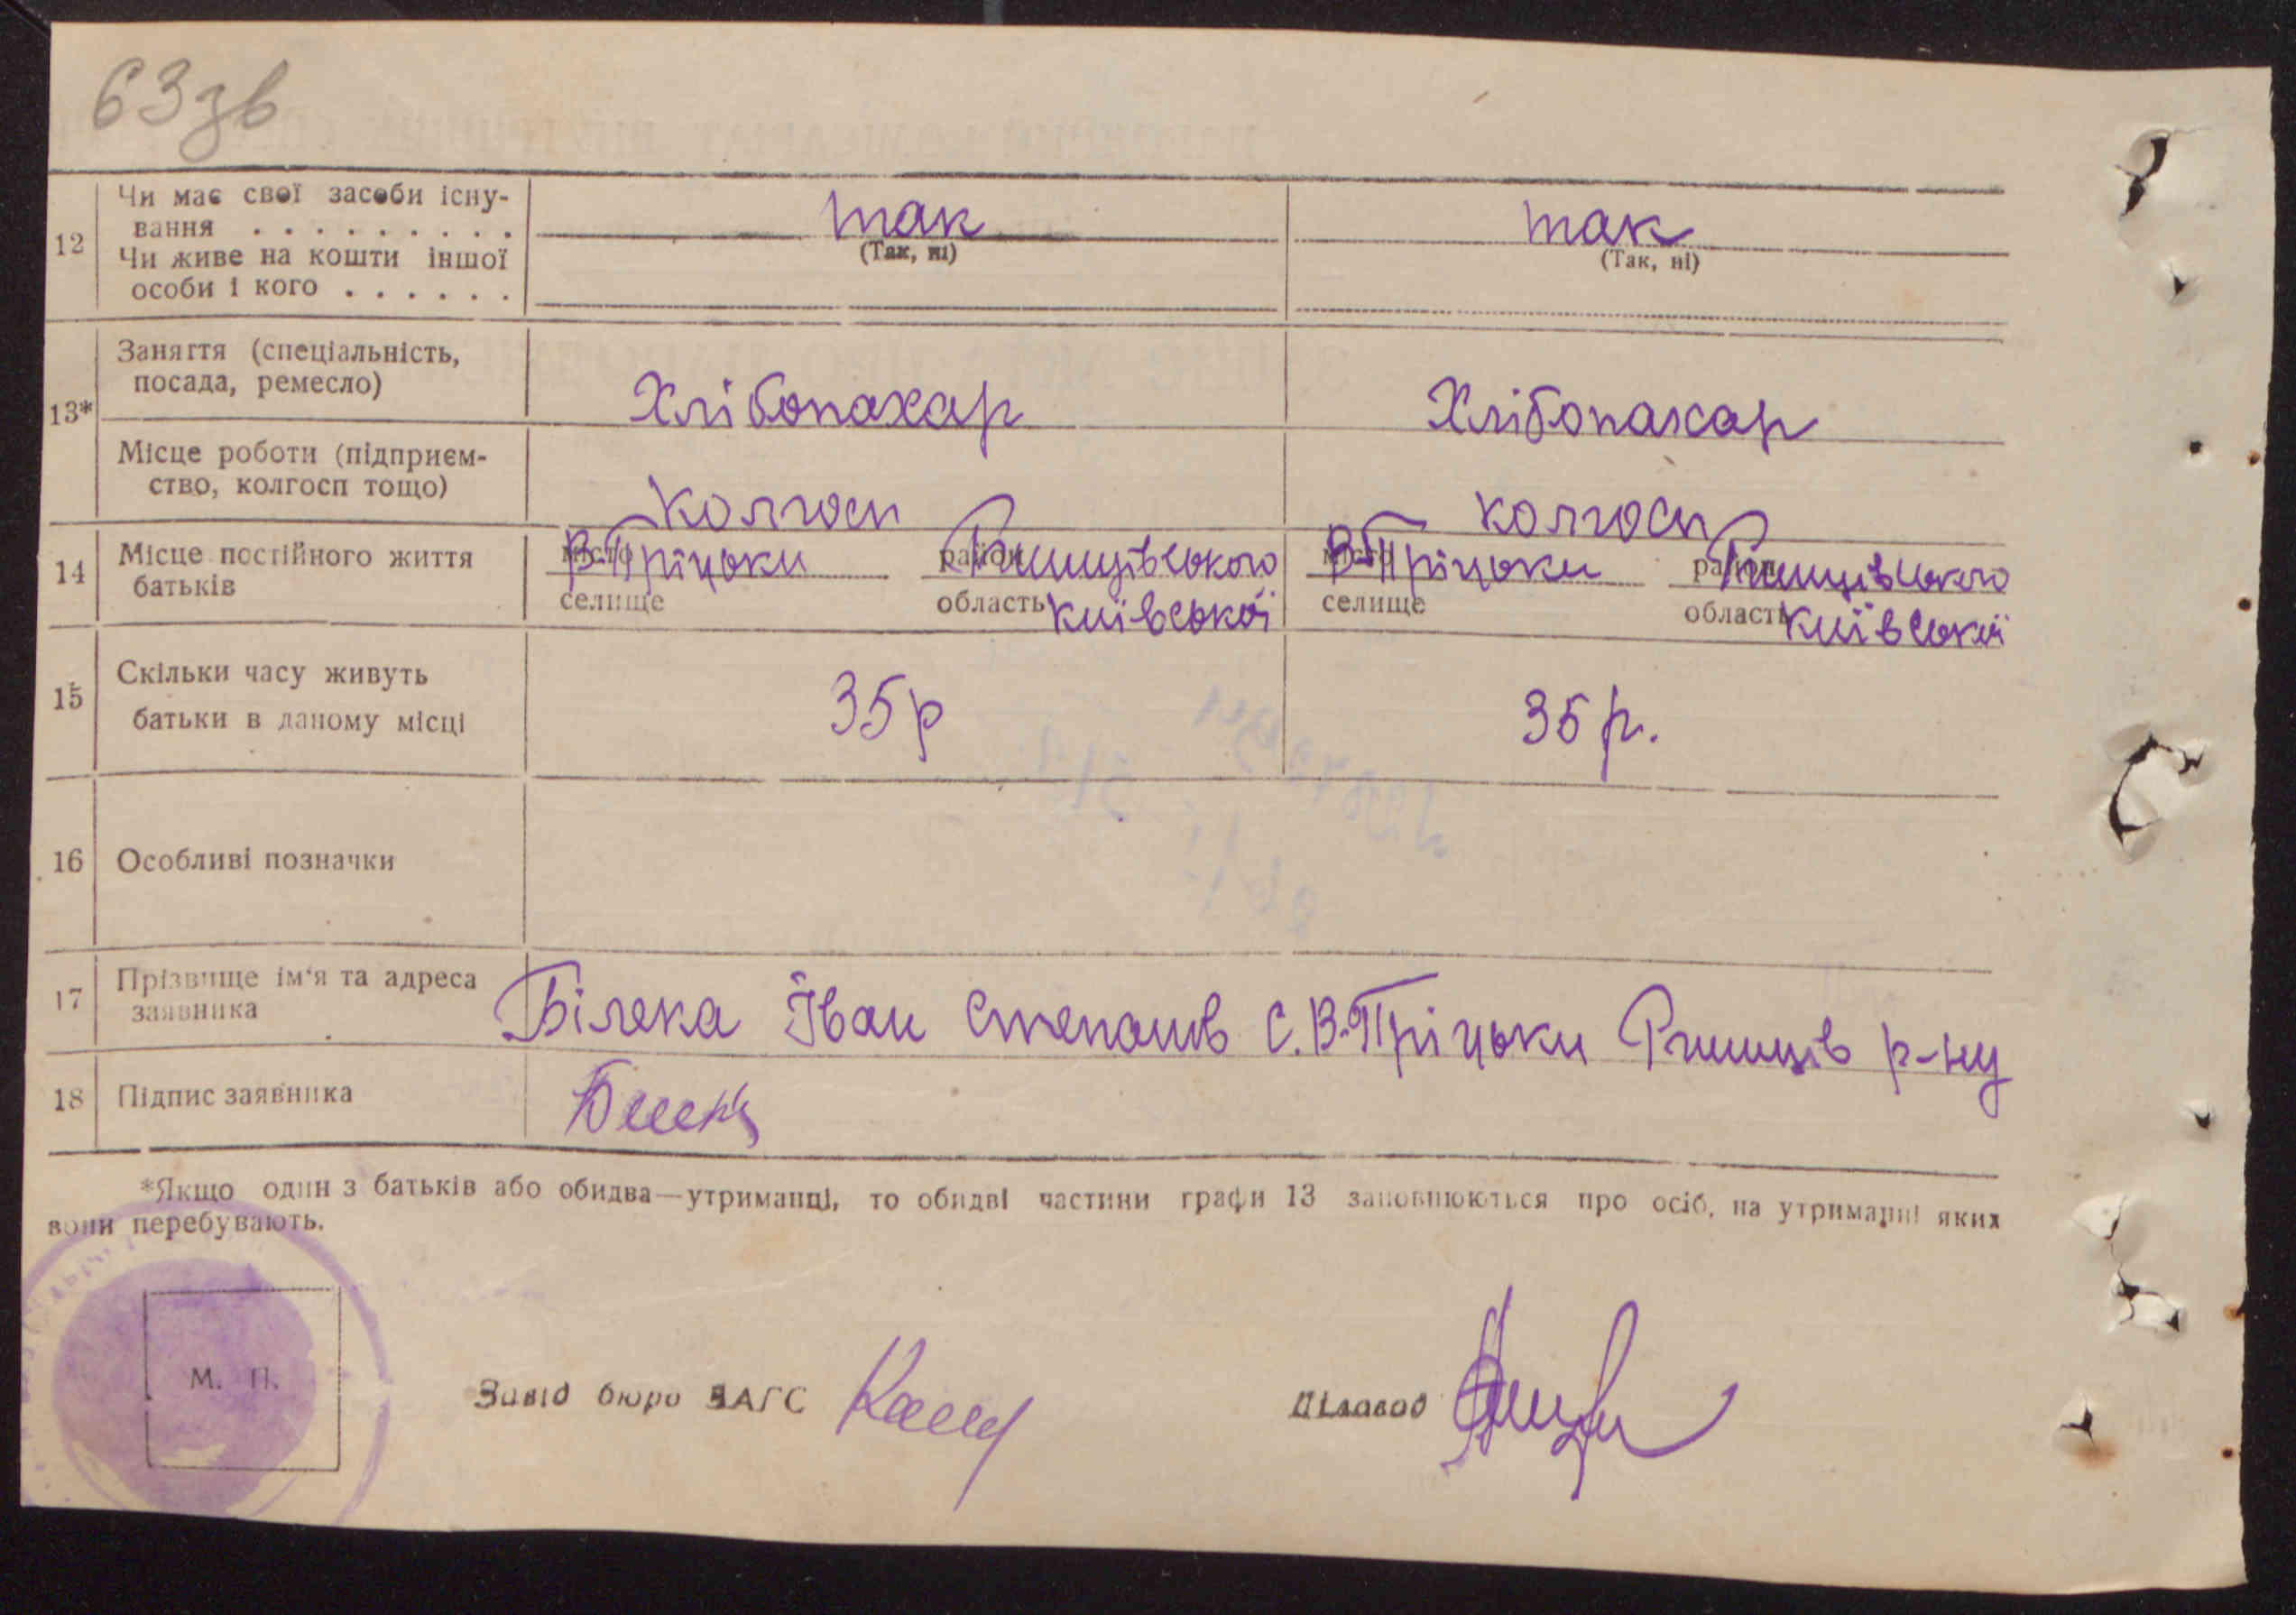 63зв
12 Чи має свої засоби існу-
вання . . . . . . . . . так так
Чи живе на кошти іншої (Так, ні) (Так, ні)
особи і кого . . . . . .
13* Заняття (спеціальність,
посада, ремесло) Хлібопахар Хлібопахар
Місце роботи (підприєм-
ство, колгосп тощо) колгосп колгосп
14 Місце постійного життя місто В-Пріцьки район Ржищівського місто В-Пріцьки район Ржищівського
батьків селище область київської селище область київської
15 Скільки часу живуть
батьки в даному місці 35р 35 р.
16 Особливі позначки
17 Прізвище ім'я та адреса
заявника Білека Іван Степанів С. В-Пріцьки Ржищів р-ну
18 Підпис заявника
*Якщо один з батьків або обидва—утриманці, то обидві частини графи 13 заповнюються про осіб, на утриманні яких
вони перебувають.
М. П.
Завід бюро ЗАГС Діловод